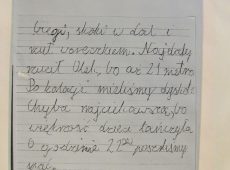 biegi, skoki w dal i
rzut woreczkiem. Najdalej
rzucił Olek, bo aż 21 metrów
Po kolacji mieliśmy dyskot
Chyba najciekawszą, bo
większość dzieci tańczyła.
O godzinie 22⁰⁰ poszliśmy
spać.